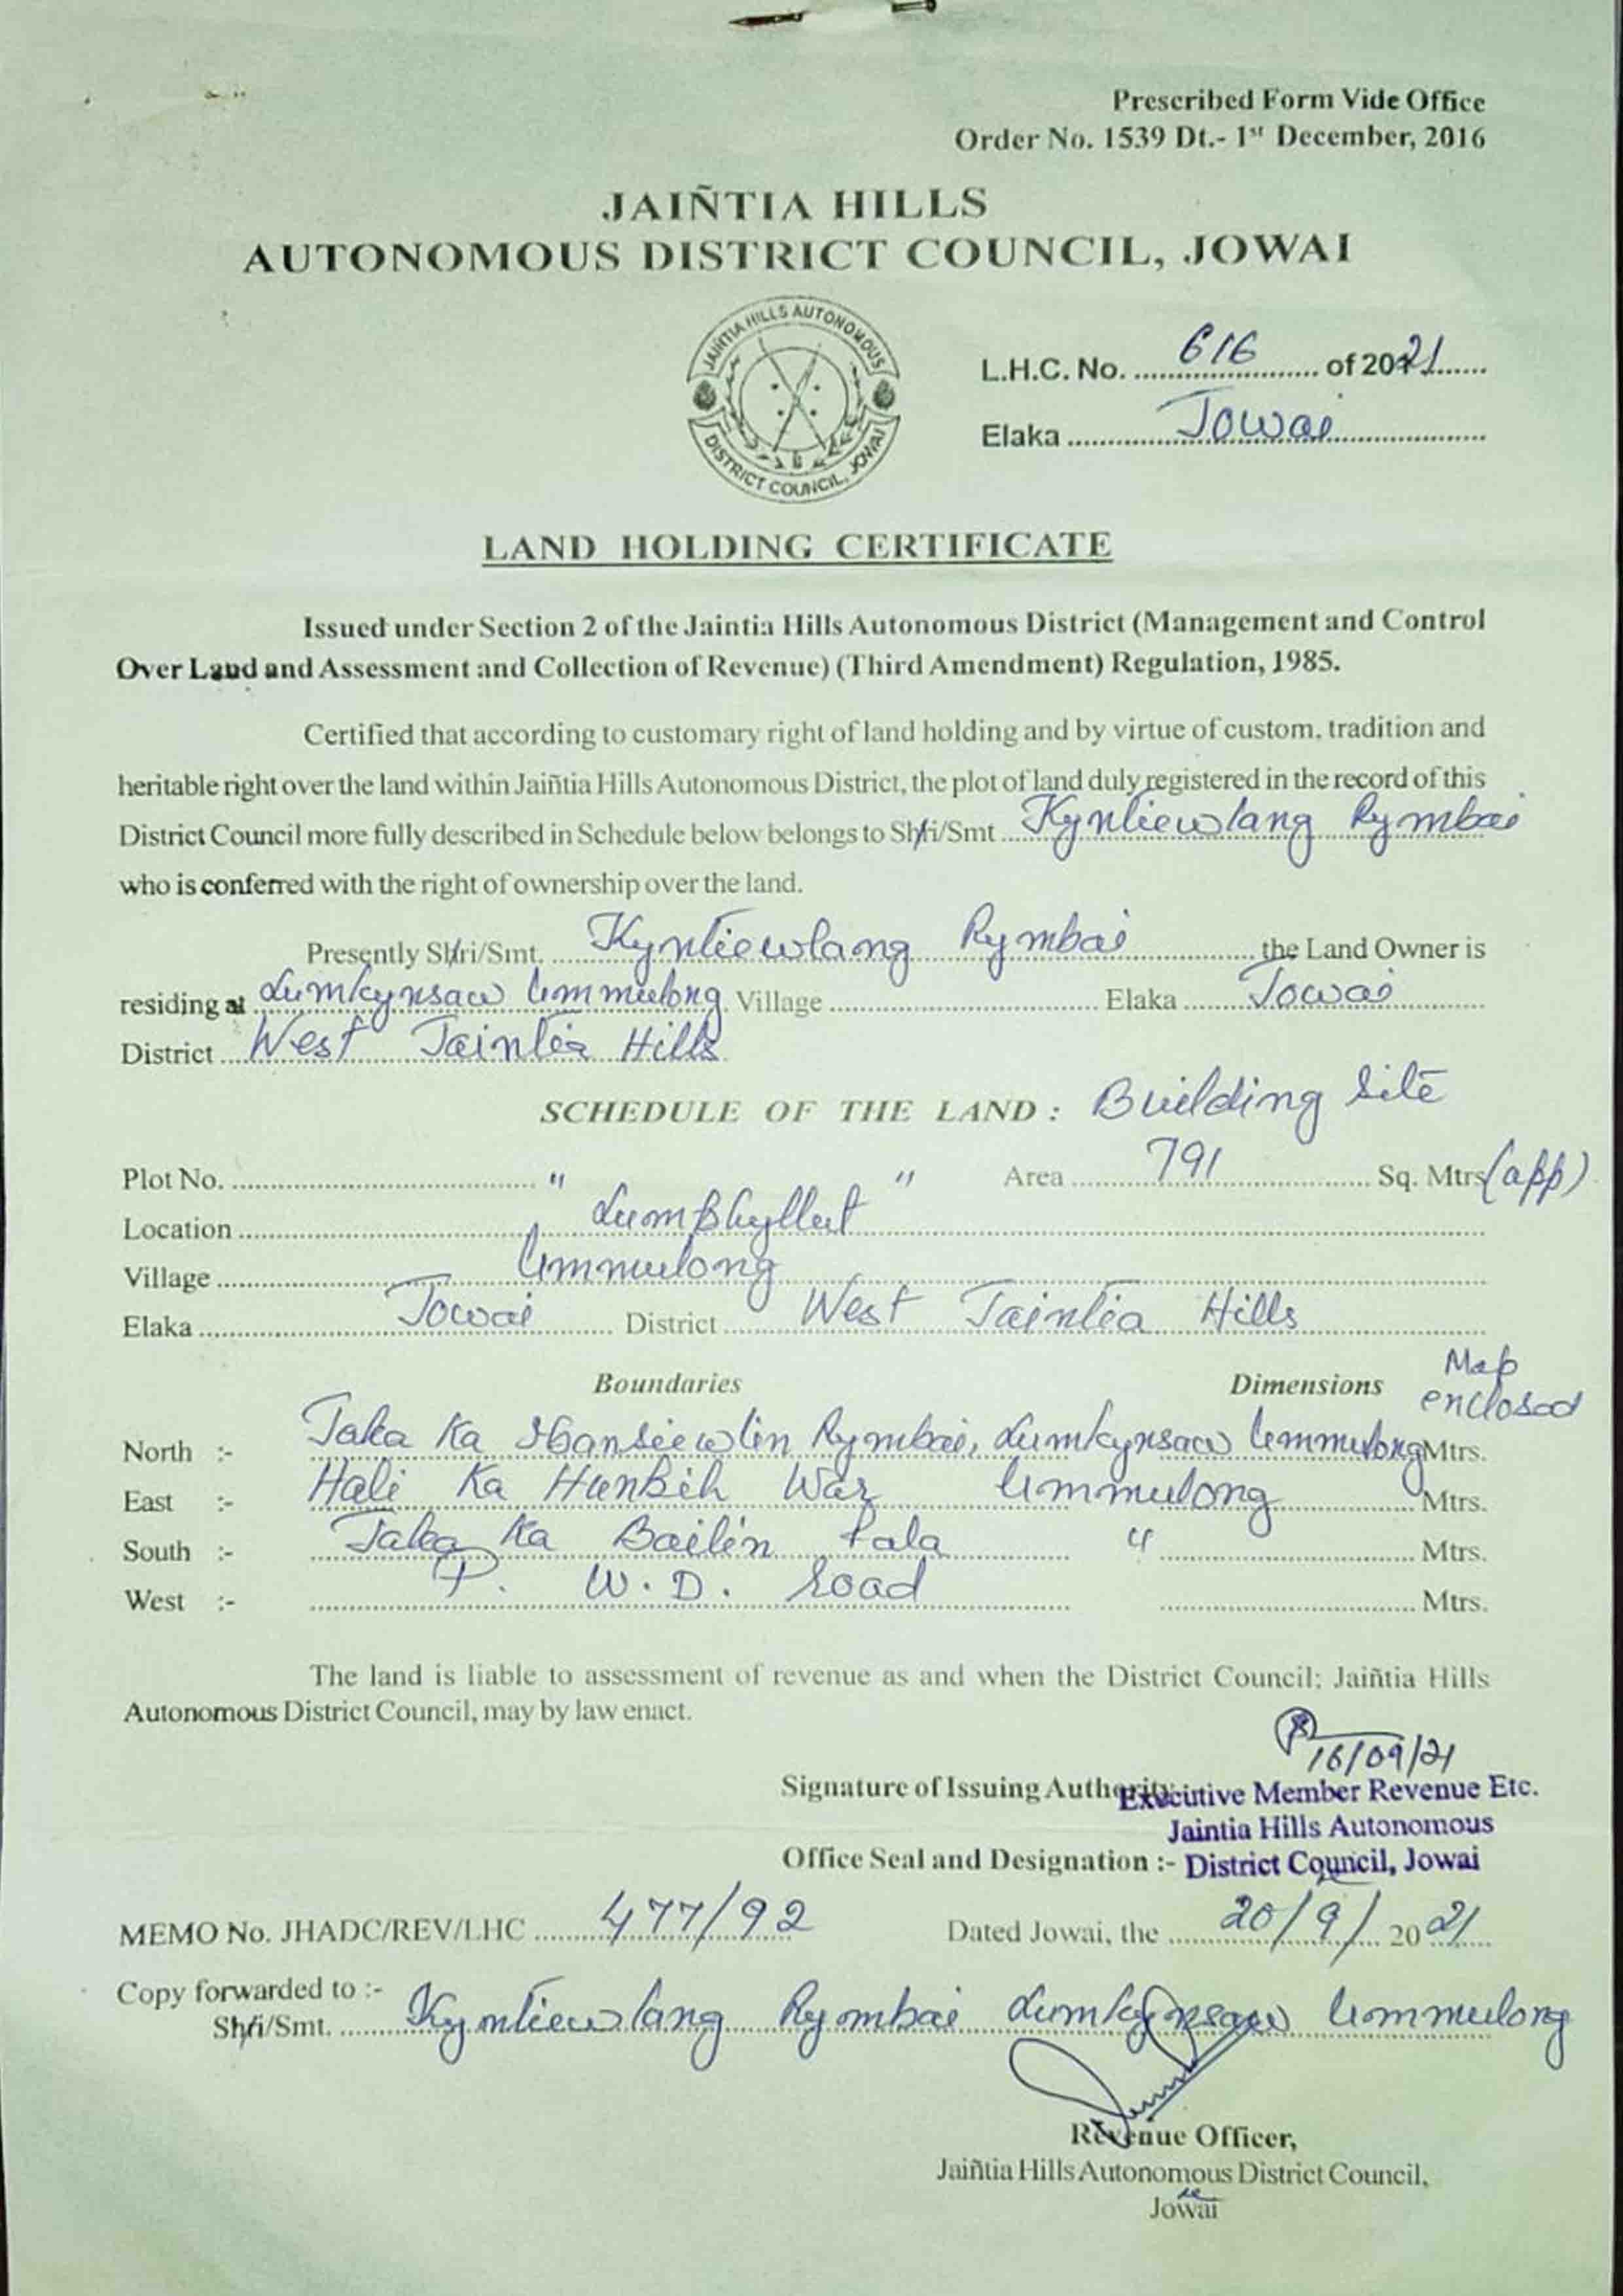 Prescribed Form Vide Office
Order No. 1539 Dt.- 1st December, 2016
JAIÑTIA HILLS
AUTONOMOUS DISTRICT COUNCIL, JOWAI
JAINTIA HILLS AUTONOMOUS
DISTRICT COUNCIL, JOWAI
L.H.C. No. 616 of 2021
Elaka Jowai
LAND HOLDING CERTIFICATE
Issued under Section 2 of the Jaintia Hills Autonomous District (Management and Control
Over Land and Assessment and Collection of Revenue) (Third Amendment) Regulation, 1985.
Certified that according to customary right of land holding and by virtue of custom, tradition and
heritable right over the land within Jaiñtia Hills Autonomous District, the plot of land duly registered in the record of this
District Council more fully described in Schedule below belongs to Shri/Smt Kyntiewlang Rymbai
who is conferred with the right of ownership over the land.
Presently Shri/Smt. Kyntiewlang Rymbai the Land Owner is
residing at Lumkynsaw Ummulong Village Elaka Jowai
District West Jaintia Hills
SCHEDULE OF THE LAND : Building Site
Plot No. " " Area 791 Sq. Mtrs (app)
Location
Village Ummulong
Elaka Jowai District West Jaintia Hills
Boundaries Dimensions Map enclosed
North :- Jaka Ka Rymbai, Lumkynsaw Ummulong Mtrs.
East :- Hali Ka Hunbih War Ummulong Mtrs.
South :- Jaka Ka Bailin Pala " Mtrs.
West :- P. W. D. Road Mtrs.
The land is liable to assessment of revenue as and when the District Council; Jaiñtia Hills
Autonomous District Council, may by law enact.
16/09/21
Signature of Issuing Authority Executive Member Revenue Etc.
Jaintia Hills Autonomous
Office Seal and Designation :- District Council, Jowai
MEMO No. JHADC/REV/LHC 477/92 Dated Jowai, the 20/9/2021
Copy forwarded to :-
Shri/Smt. Kyntiewlang Rymbai Lumkynsaw Ummulong
Revenue Officer,
Jaiñtia Hills Autonomous District Council,
Jowai